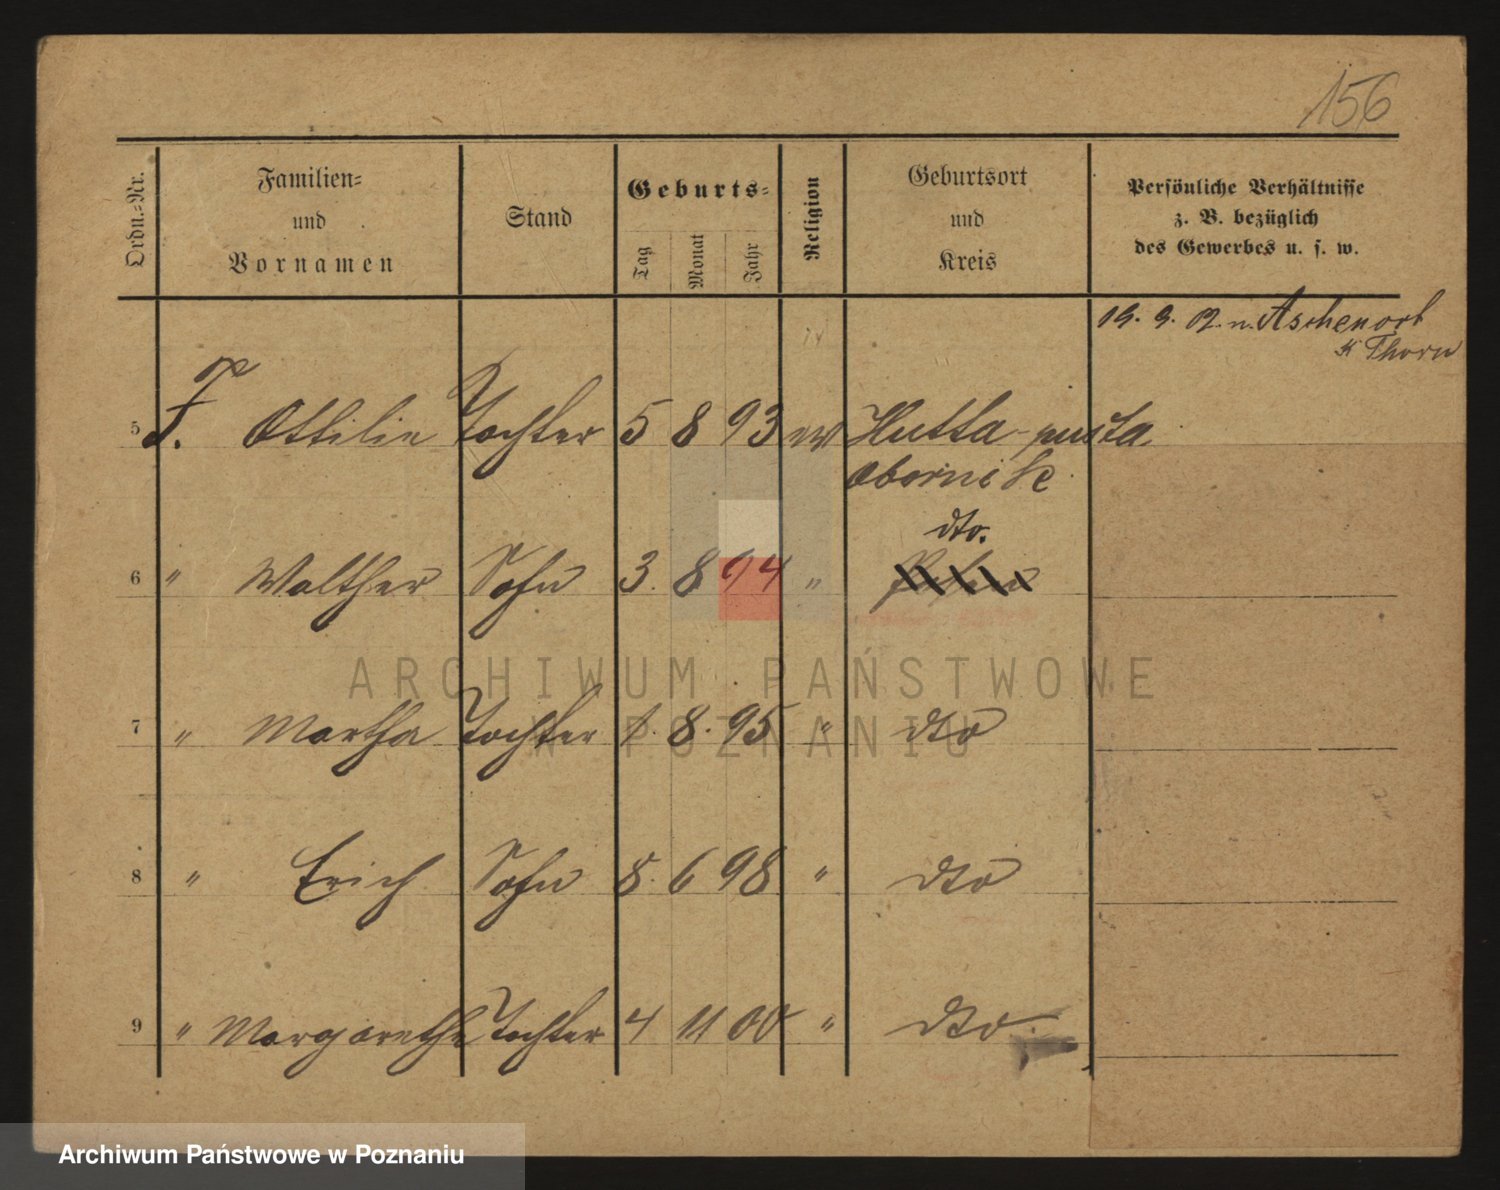 156
Ordn.-Nr.
Familien-
und
Vornamen
Stand
Geburts-
Tag
Monat
Jahr
Religion
Geburtsort
und
Kreis
Persönliche Verhältnisse
z. B. bezüglich
des Gewerbes u. s. w.
19. 9. 02. n. Aschenort
Kr Thorn
5 F. Ottilie Tochter 5 8 93 ev Hutta-pusta
Obornik
dto.
6 " Walther Sohn 3. 8 94 "
7 " Martha Tochter 1. 8. 95 " dto
8 " Erich Sohn 8. 6 98 " dto
9 " Margarethe Tochter 4 11 00 " dto.
ARCHIWUM PAŃSTWOWE
W POZNANIU
Archiwum Państwowe w Poznaniu